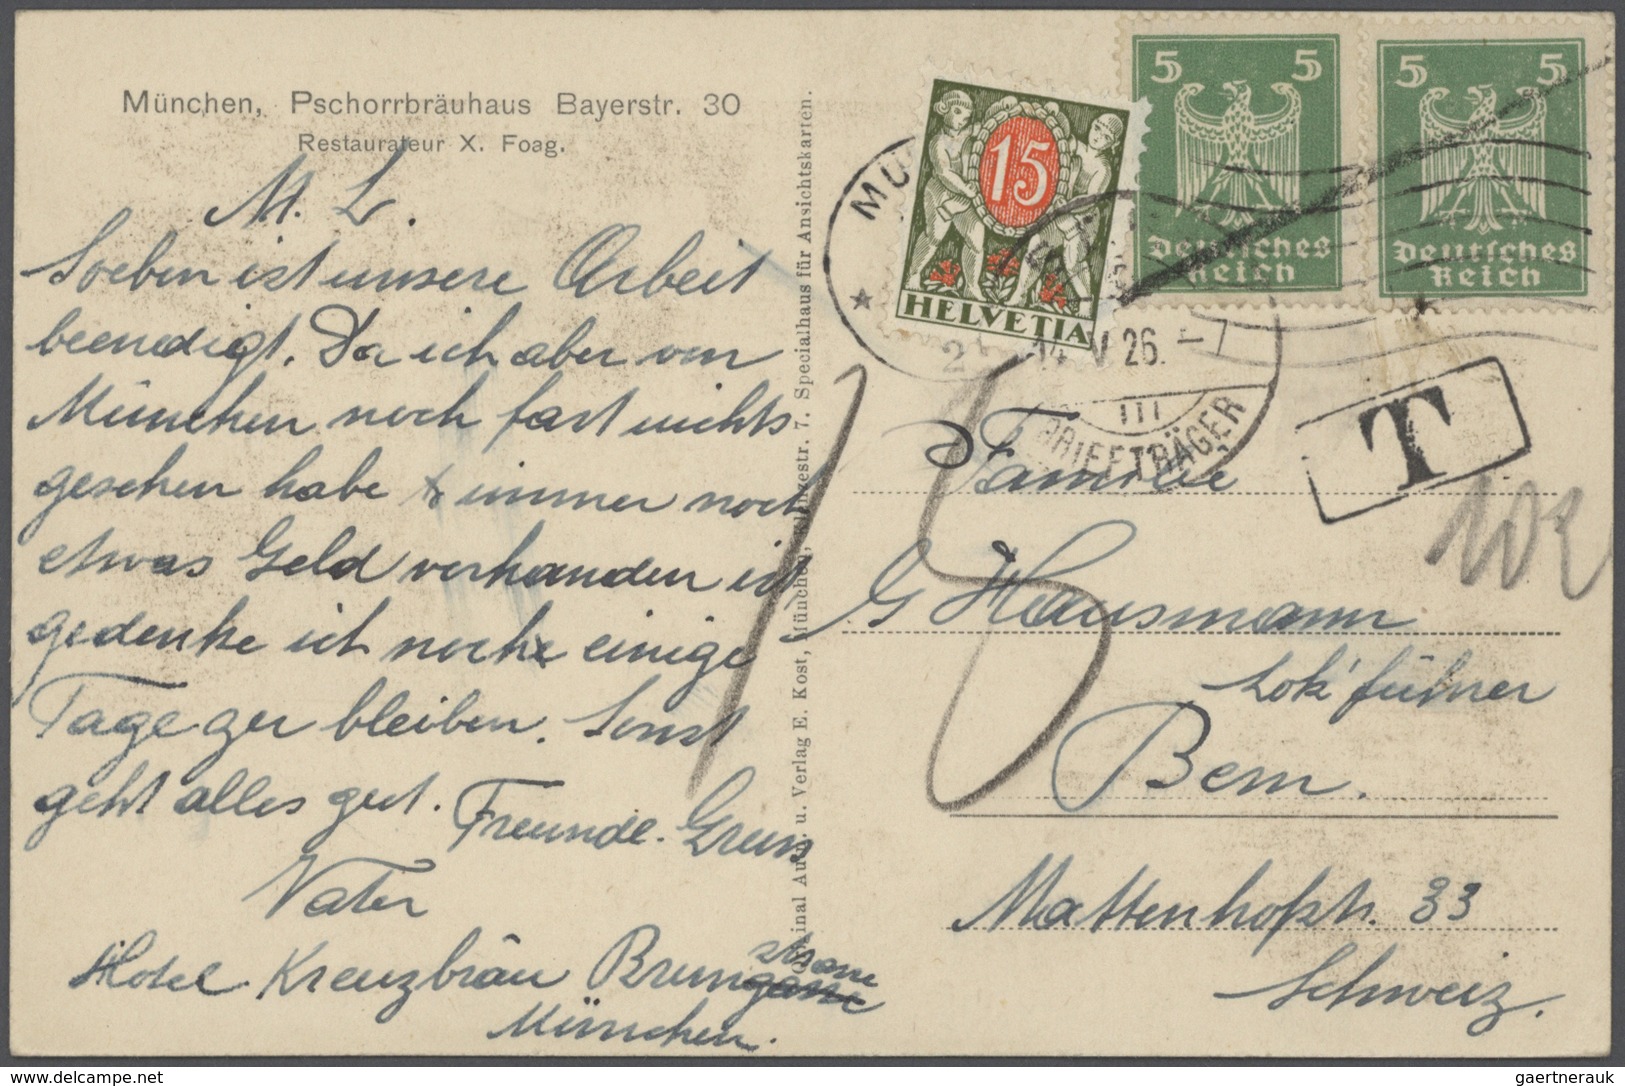 München, Pschorrbräuhaus Bayerstr. 30
Restaurateur X. Foag.
M. L.
Soeben ist unsere Arbeit
beendigt. Da ich aber von
München noch fast nichts
gesehen habe & immer noch
etwas Geld vorhanden ist
gedenke ich noch einige
Tage zu bleiben. Sonst
geht alles gut. Freundl. Gruss
Vater
Hotel Kreuzbräu Brunnstrasse
München.
Original Aufn. u. Verlag E. Kost, München, 7. Specialhaus für Ansichtskarten.
15
HELVETIA
5 5
Deutsches
Reich
5 5
Deutsches
Reich
MÜ
2
14 V 26.
III
BRIEFTRÄGER
T
15
10 c
Familie
G Hausmann
Lok'führer
Bern.
Mattenhofstr. 33
Schweiz.
gaertnerauk
delcampe.net